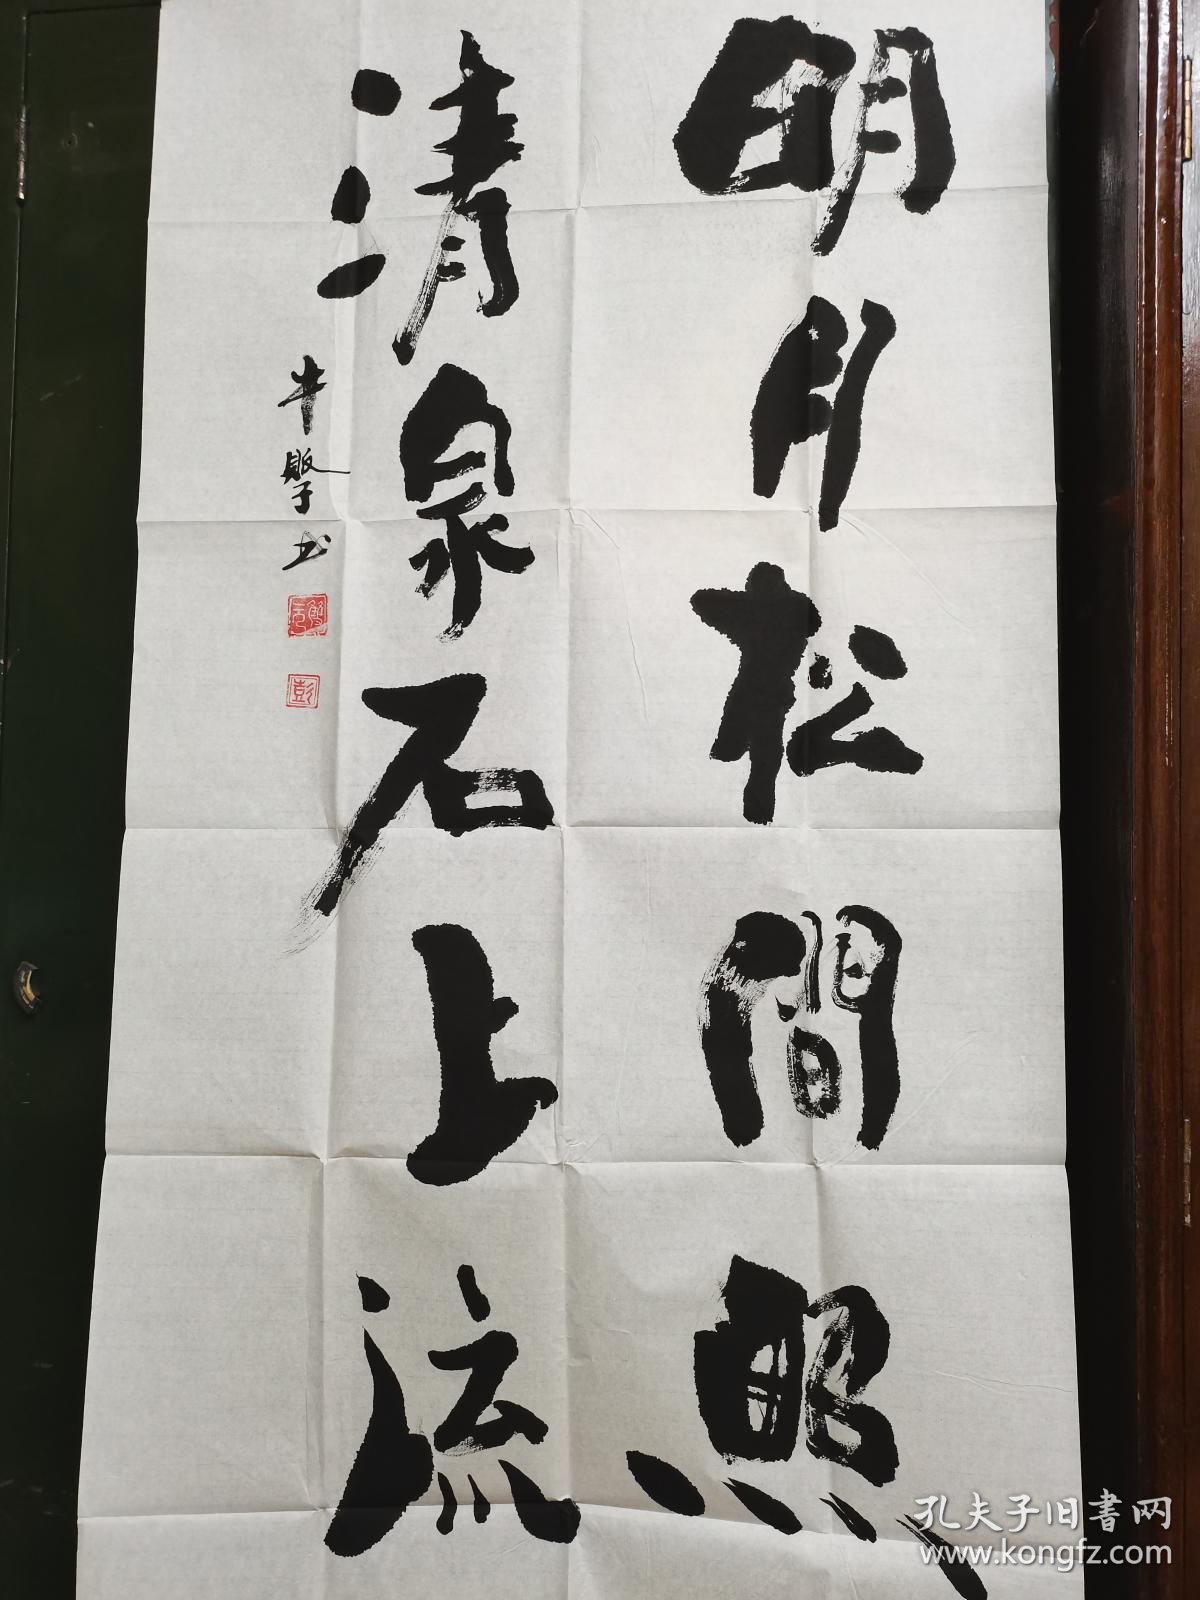 明月松間照
清泉石上流
牛
子书
彭
孔夫子旧書网
www.kongfz.com